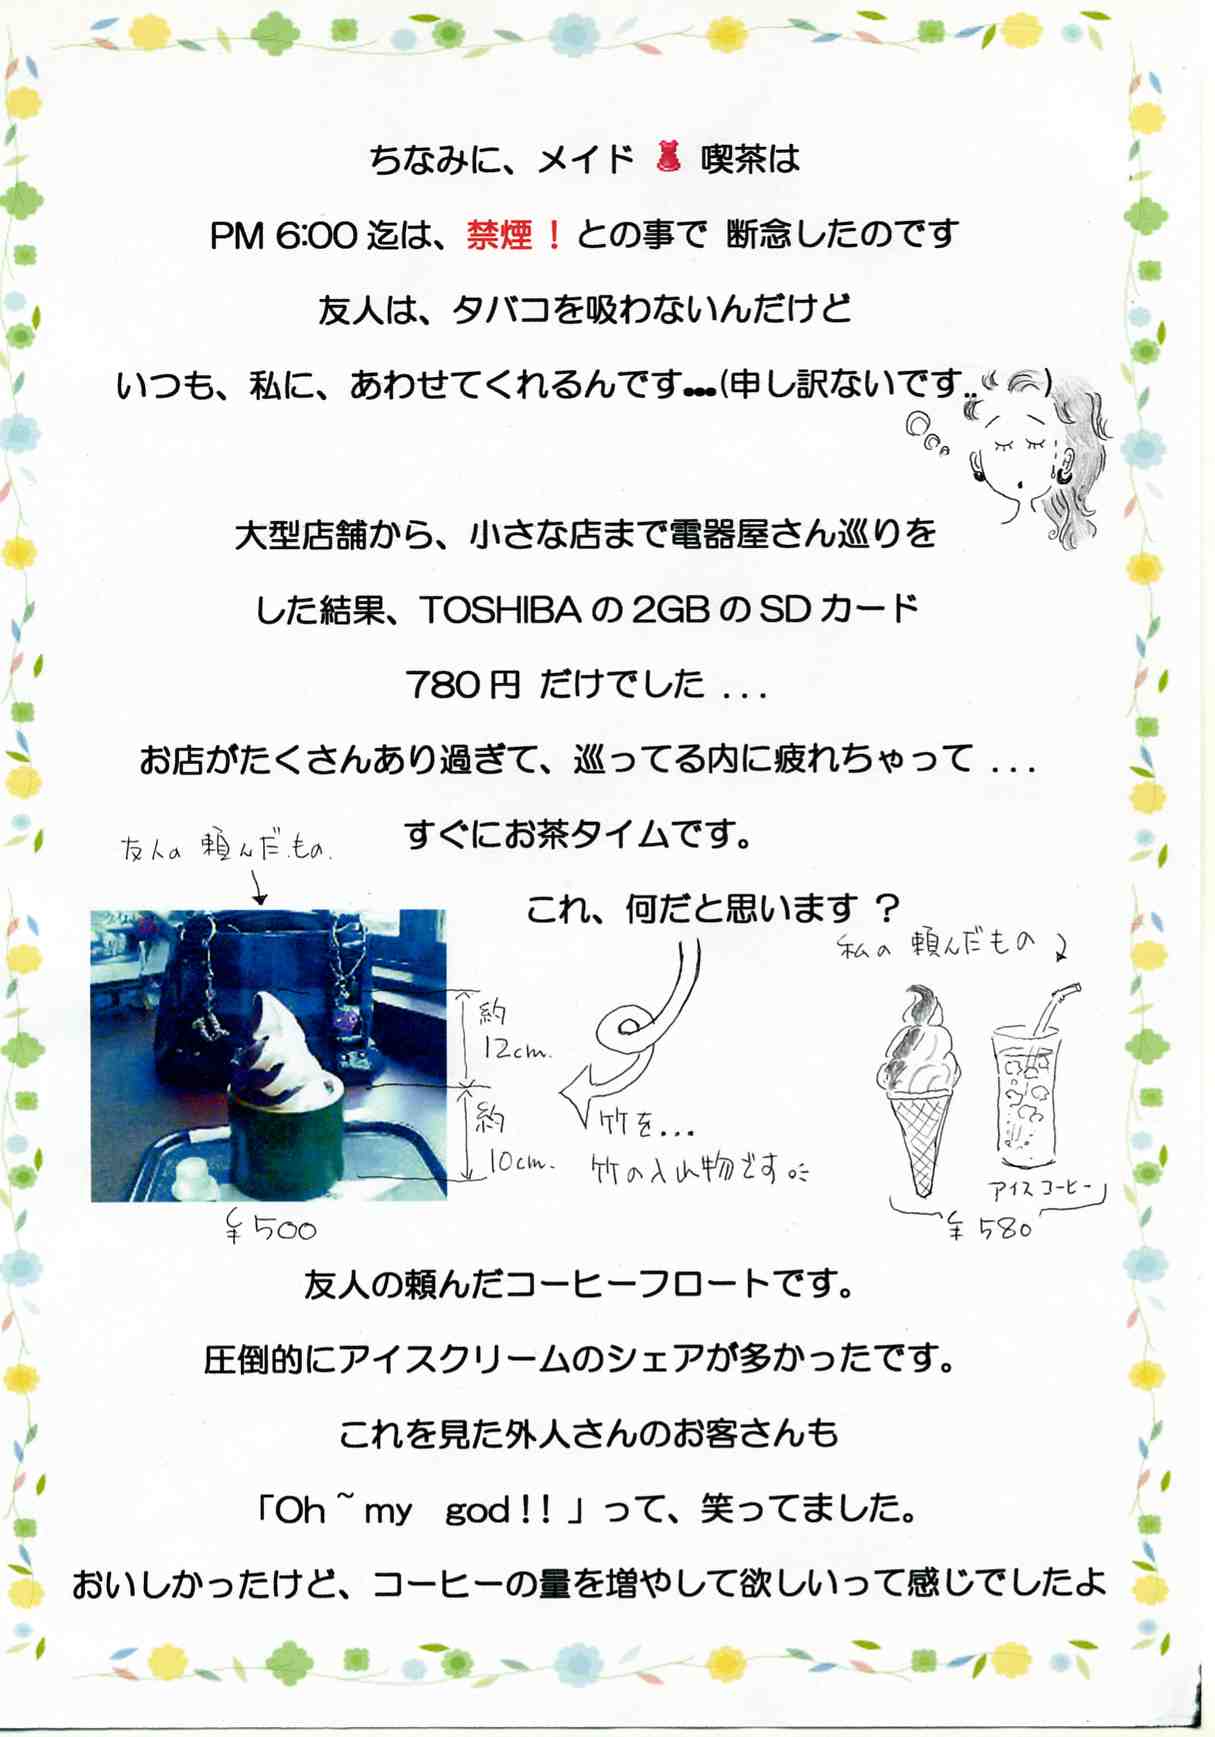 ちなみに、メイド 喫茶は
PM 6:00 迄は、禁煙！との事で 断念したのです
友人は、タバコを吸わないんだけど
いつも、私に、あわせてくれるんです...(申し訳ないです..)
大型店舗から、小さな店まで電器屋さん巡りを
した結果、TOSHIBA の 2GB の SD カード
780 円 だけでした ...
お店がたくさんあり過ぎて、巡ってる内に疲れちゃって ...
すぐにお茶タイムです。
友人の頼んだもの.
これ、何だと思います ？
私の頼んだもの
約
12cm.
約
10cm.
竹を...
竹の入れ物です。
アイスコーヒー
¥500
¥580
友人の頼んだコーヒーフロートです。
圧倒的にアイスクリームのシェアが多かったです。
これを見た外人さんのお客さんも
「Oh ~ my god ! ! 」って、笑ってました。
おいしかったけど、コーヒーの量を増やして欲しいって感じでしたよ